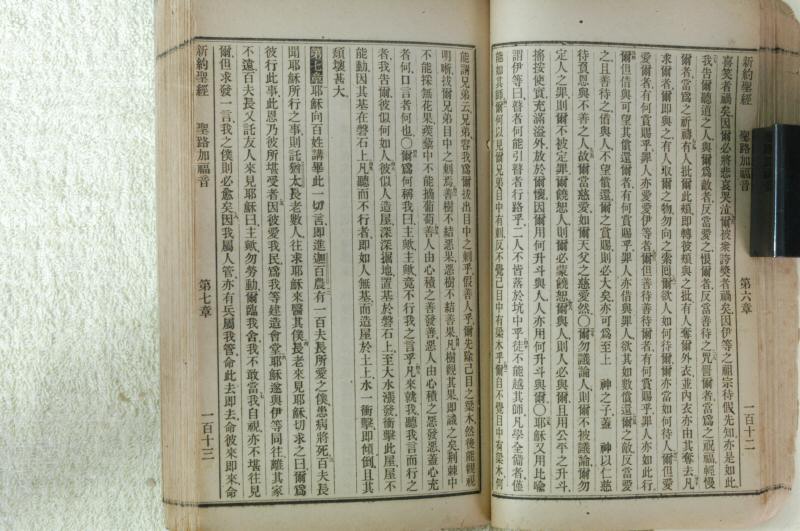 新約聖經　聖路加福音　第六章　一百十二
喜笑者禍矣因爾必將悲哀哭泣爾被衆誇獎者禍矣因伊等之祖宗待假先知亦是如此
我告爾聽道之人與爾爲敵者反當愛之恨爾者反當善待之咒詛爾者當爲之祝福輕慢
爾者當爲之祈禱有人批爾此頰即轉彼頰與之批有人奪爾外衣並內衣亦由其奪去凡
求爾者爾即與之有人取爾之物勿向之索囘爾欲人如何待爾爾亦當如何待人爾但愛
愛爾者有何賞賜乎罪人亦愛愛伊等者爾但善待善待爾者有何賞賜乎罪人亦如此行
爾但借與可望其償還爾者有何賞賜乎罪人亦借與罪人欲其如數償還爾之敵反當愛
之且善待之借與人不望償還爾之賞賜則必大矣亦可爲至上　神之子蓋　神以仁慈
待負恩與不善之人故爾當慈愛如爾天父之慈愛然〇爾勿議論人則爾不被議論爾勿
定人之罪則爾不被定罪爾饒恕人則爾必蒙饒恕爾與人則人必與爾且用公平之升斗
搖按使實充滿溢外放於爾懷因爾用何升斗與人人亦用何升斗與爾〇耶穌又用比喻
謂伊等曰瞽者何能引瞽者行路乎二人不皆落於坑中乎徒不能越其師凡學全備者僅
能如其師爾何以見爾兄弟目中有刺反不覺己目中有梁木乎爾自不覺目中有梁木何
能謂兄弟云兄弟容我爲爾拔爾目中之刺乎假善人乎爾先除己目之梁木然後能觀視
明晰拔爾兄弟目中之刺焉善樹不結惡果惡樹不結善果凡樹觀其果即識之矣荆棘中
不能採無花果蒺藜中不能摘葡萄善人由心積之善發善惡人由心積之惡發惡蓋心充
者何口言者何也〇爾爲何稱我曰主歟主歟竟不行我之言乎凡來就我聽我言而行之
者我告爾彼似何如人彼似人造屋深深掘地置基於磐石上至大水漲發衝擊此屋屋不
能動因其基在磐石上凡聽而不行者即如人無基而造屋於土上水一衝擊即傾倒且其
頹壞甚大
第七章耶穌向百姓講畢此一切言即進迦百農有一百夫長所愛之僕患病將死百夫長
聞耶穌所行之事則託猶太長老數人往求耶穌來醫其僕長老來見耶穌切求之曰爾爲
彼行此事此恩乃彼所堪受者因彼愛我民爲我等建造會堂耶穌遂與伊等同往離其家
不遠百夫長又託友人來見耶穌曰主歟勿勞動爾臨我舍我不敢當我自視亦不堪往見
爾但求發一言我之僕則必愈矣因我屬人管亦有兵屬我管命此去即去命彼來即來命
新約聖經　聖路加福音　第七章　一百十三